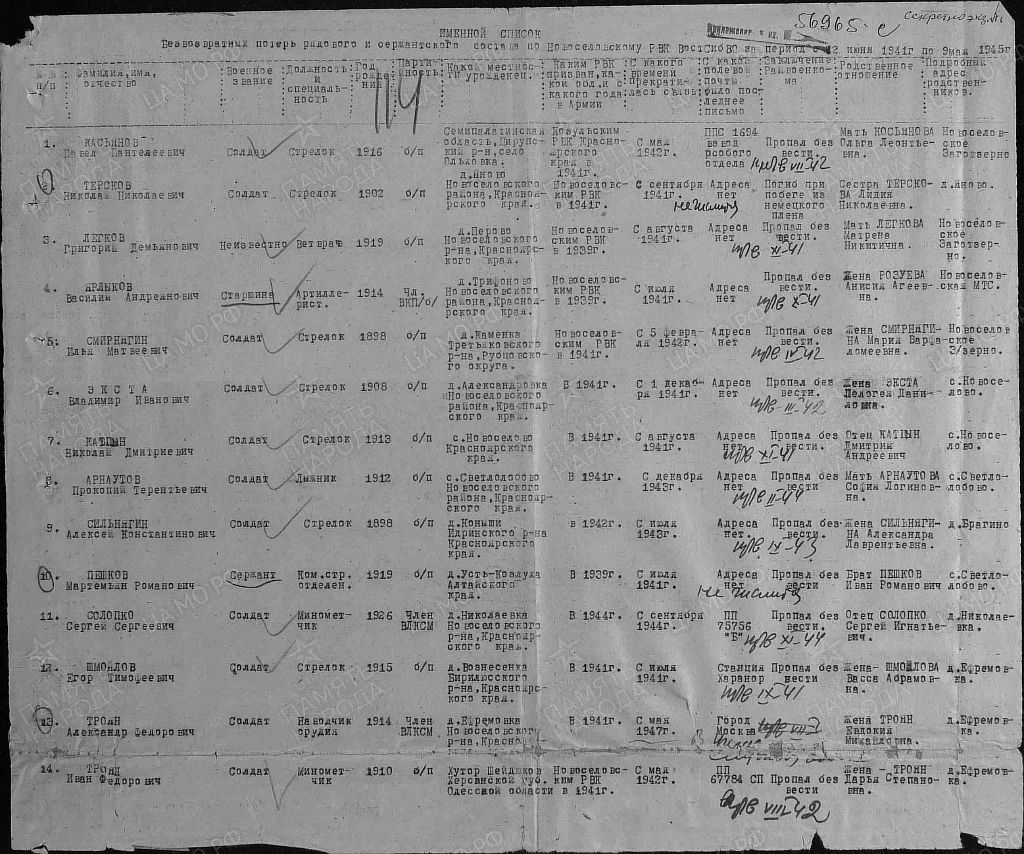 56965 с
Секретно экз. №1
ИМЕННОЙ СПИСОК
Безвозвратных потерь рядового и сержантского состава по Новоселовскому РВК ВостСибВО за период с 22 июня 1941г по 9мая 1945г
№№ п/п : Фамилия,имя, отчество : Военное звание : Должность и специаль-ность : Год рожде ния : Парти йность : Какой местнос-ти урожденец. : Каким РВК призван,ка-кой обл.и с какого года в Армии : С какого времени прекрати-лась связь : С какой полевой почты было пос-леднее письмо : Заключение Райвоенко-ма : Родственное отношение : Подробный адрес родствен-ников.
114
1. КАСЬЯНОВ Павел Пантелеевич Солдат Стрелок 1916 б/п Семипалатинская область, р-н,село Ольховка. Козульским РВК Красно-ярского края в 1941г. С мая 1942г. ППС 1694 взвод особого отдела Пропал без вести. Мать КОСЬЯНОВА Ольга Леонтье-вна. Новосел-ское Заготзерно
проп VII-42
2. ТЕРСКОВ Николай Николаевич Солдат Стрелок 1902 б/п д.Яново Новоселовского района,Красноя-рского края. Новоселовс-ким РВК в 1941г. С сентября 1941г. Адреса нет Погиб при побеге из немецкого плена Сестра ТЕРСКО-ВА Лидия Николаевна. д.Яново.
3. ЛЕГКОВ Григорий Демьянович Неизвестно Ветврач 1919 б/п д.Перово Новоселовского р-на,Красноярс-кого края. Новоселов-ским РВК в 1939г. С августа 1941г. Адреса нет Пропал без вести. Мать ЛЕГКОВА Матрена Никитична. Новоселов-ское Заготзер-но.
проп XI-41
4. ЯРЛЫКОВ Василий Андреянович Старшина Артилле-рист. 1914 Чл. ВКП/б/ д.Трифоново Новоселовского района,Красноя-рского края. Новоселовс-ким РВК в 1939г. С июля 1941г. Адреса нет Пропал без вести. Жена РОЗУЕВА Анисия Агеев-на. Новоселов-ская МТС.
проп X-41
5. СМИРНЯГИН Илья Матвеевич Солдат Стрелок 1898 б/п д.Каменка Третьяковского р-на,Рубцовско-го округа. Новоселовс-ким РВК в 1941г. С 5 февра-ля 1942г. Адреса нет. Пропал без вести. Жена СМИРНЯГИ-НА Мария Варфо-ломеевна. Новоселов ское З/зерно.
проп IV-42
6. ЭКСТА Владимир Иванович Солдат Стрелок 1908 б/п д.Александровка Новоселовского района,Краснояр-ского края. В 1941г. С 1 декаб-ря 1941г. Адреса нет. Пропал без вести. Жена ЭКСТА Пелогея Дани-ловна. с.Новосе-лово.
проп III-42
7. КАТЦЫН Николай Дмитриевич Солдат Стрелок 1913 б/п с.Новоселово Красноярского края. В 1941г. С августа 1941г. Адреса нет Пропал без вести. Отец КАТЦЫН Дмитрий Андреевич с.Новосе-лово.
проп XI-41
8. АРНАУТОВ Прокопий Терентьевич Солдат Лыжник 1912 б/п с.Светлолобово Новоселовского района,Краснояр-ского края. В 1941г. С декабря 1943г. Адреса нет Пропал без вести Мать АРНАУТОВА София Логинов-на. с.Светло-лобово.
проп II-44
9. СИЛЬНЯГИН Алексей Константинович Солдат Стрелок 1898 б/п д.Коныши Идринского р-на Красноярского края. в 1942г. С июля 1943г. Адреса нет. Пропал без вести. Жена СИЛЬНЯГИ-НА Александра Лаврентьевна. д.Брагино
проп IX-43
10. ПЕШКОВ Мартемьян Романович Сержант Ком.стр. отделен. 1919 б/п д.Усть-Козлуха Алтайского края. В 1939г. С июля 1941г. Адреса нет Пропал без вести Брат ПЕШКОВ Иван Романович с.Светло-лобово.
11. СОЛОПКО Сергей Сергеевич Солдат Миномет-чик 1926 Член ВЛКСМ д.Николаевка Новоселовского р-на,Краснояр-ского края. В 1944г. С сентября 1944г. ПП 75756 "Е" Пропал без вести. Отец СОЛОПКО Сергей Игнатье-вич. д.Николае-вка.
проп XI-44
12. ШМОЙЛОВ Егор Тимофеевич Солдат Стрелок 1915 б/п д.Вознесенка Бирилюсского р-на,Красноярс-кого края. В 1941г. С июля 1941г. Станция Харанор Пропал без вести Жена- ШМОЙЛОВА Васса Абрамов-на. д.Ефремов-ка.
проп IX-41
13. ТРОЯН Александр Федорович Солдат Наводчик орудия 1914 Член ВЛКСМ д.Ефремовка Новоселовского р-на,Красноя В 1941г. С мая 1947г. Город Москва Жена ТРОЯН Евдокия Михайловна. д.Ефремов-ка.
14. ТРОЯН Иван Федорович Солдат Миномет-чик 1910 б/п Хутор Шейдюков Херсанской губ. Одесской области Новоселовс-ким РВК в 1941г. С мая 1942г. ПП 67784 СП Пропал без вести Жена - ТРОЯН Дарья Степано-вна. д.Ефремов-ка.
проп VIII-42
ПАМЯТЬ НАРОДА
ЦА МО РФ